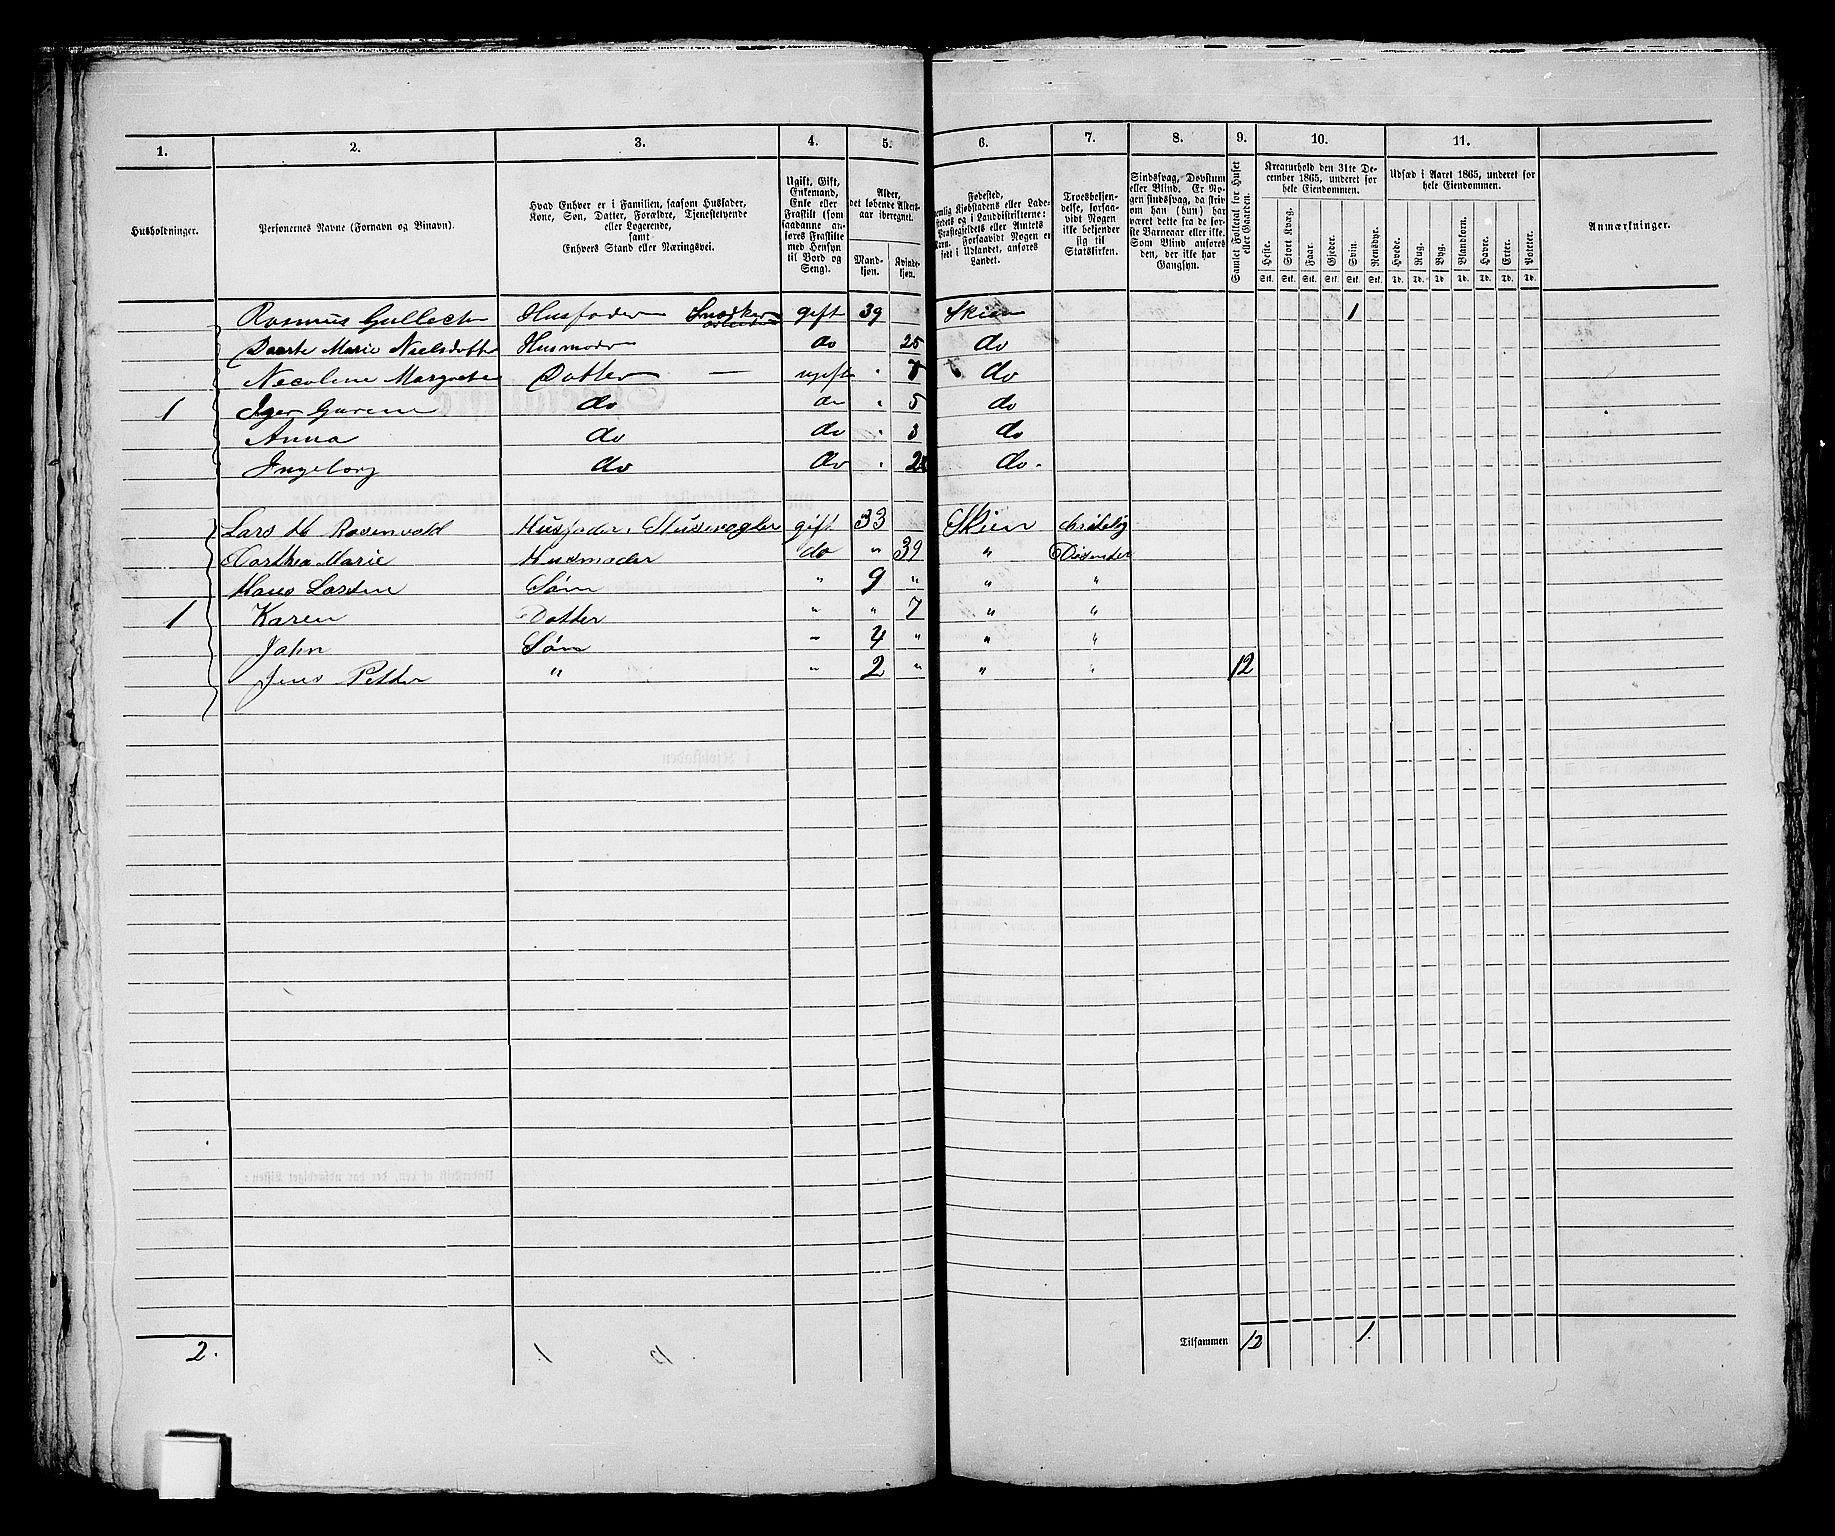 1. 2. 3. 4. 5. 6. 7. 8. 9. 10. 11.
Husholdninger.
Personernes Navne (Fornavn og Binavn).
Hvad Enhver er i Familien, saasom Husfader,
Kone, Søn, Datter, Forældre, Tjenestetyende
eller Logerende,
samt
Enhvers Stand eller Næringsvei.
Ugift, Gift,
Enkemand,
Enke eller
Fraskilt (som
saadanne an-
føres Fraskilte
med Hensyn
til Bord og
Seng).
Alder,
det løbende Alders-
aar iberegnet.
Mand-
kjøn.
Kvinde-
kjøn.
Fødested,
nemlig Kjøbstadens eller Lade-
stedets og i Landdistrikterne:
Præstegjeldets eller Amtets
Navn. Forsaavidt Nogen er
født i Udlandet, anføres
Landet.
Troesbekjen-
delse, forsaa-
vidt Nogen
ikke bekjender
sig til
Statskirken.
Sindssvag, Døvstum
eller Blind. Er No-
gen sindssvag, da skriv
om han (hun) har
været dette fra de før-
ste Barneaar eller ikke.
Som Blind anføres
den, der ikke har
Gangsyn.
Samlet Folketal for Huset
eller Gaarden.
Kreaturhold den 31te De-
cember 1865, underet for
hele Eiendommen.
Heste. Stort Kvæg. Faar. Gjeder. Svin. Rensdyr.
Stk. Stk. Stk. Stk. Stk. Stk.
Udsæd i Aaret 1865, underet for
hele Eiendommen.
Hvede. Rug. Byg. Blandkorn. Havre. Erter. Poteter.
Td. Td. Td. Td. Td. Td. Td.
Anmærkninger.
Rasmus Gullech Husfader gift 39 Skien 1
Marie Nielsdatter Husmoder do 25 do
Necolene Margrete Datter — ugift " 7 do
1 do do " 5 do
Anna do do " 3 do
Ingeborg do do " 2 do.
Lars H Rosenvold Husfader, gift 33 Skien
Dorthea Marie Husmoder do " 39 " Dissenter
Hans Larsen Søn " 9 " " "
1 Karen Datter " " 7 " "
John Søn " 4 " " "
Jens Petter " " 2 " " " 12
2. Tilsammen 12 1.